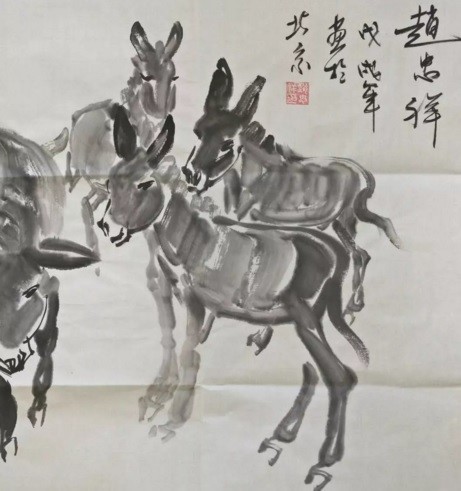 趙忠祥
戊戌年
畫於
北京